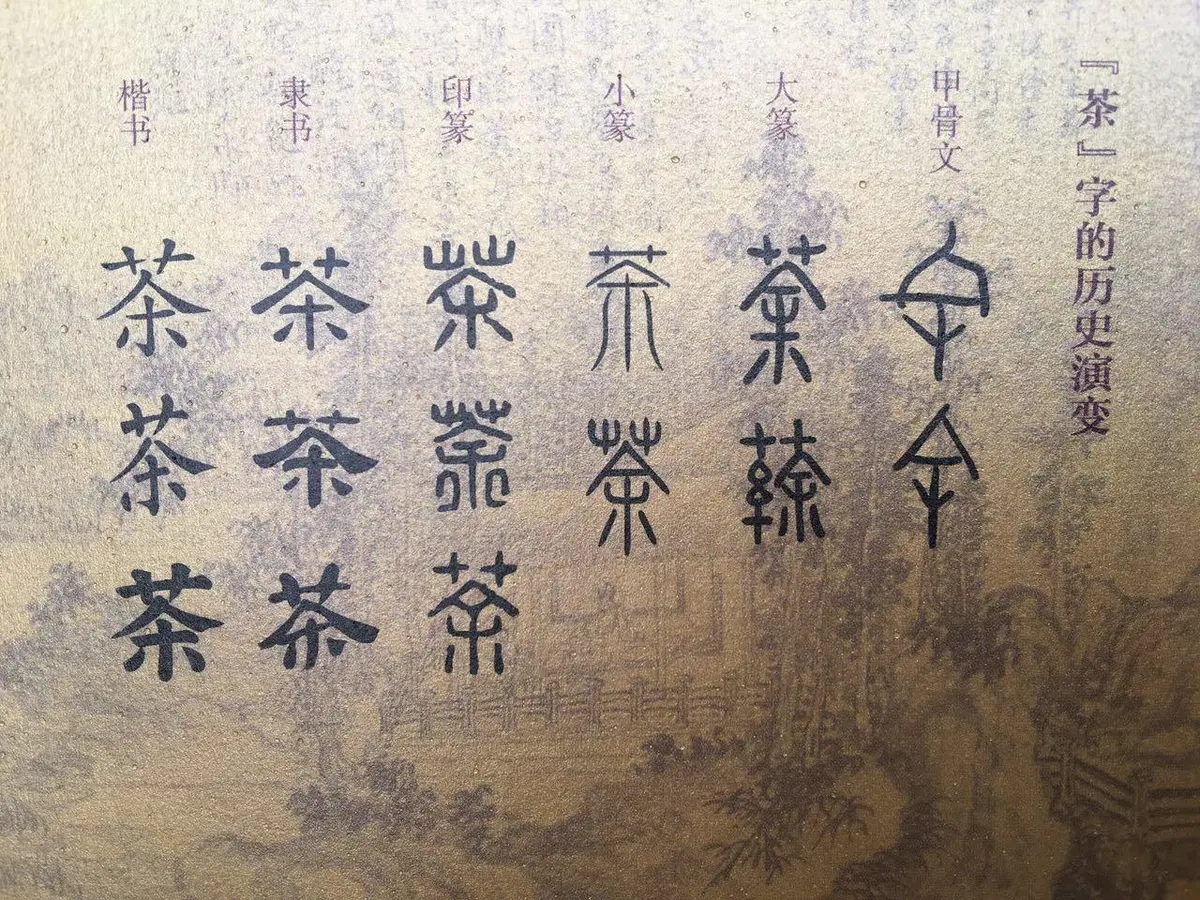 『茶』字的历史演变
甲骨文
大篆
小篆
茶
印篆
茶
茶
茶
隶书
茶
茶
茶
楷书
茶
茶
茶